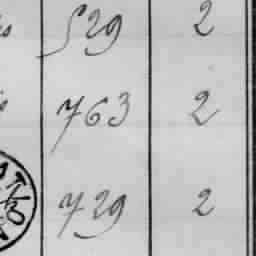 529 2
763 2
729 2